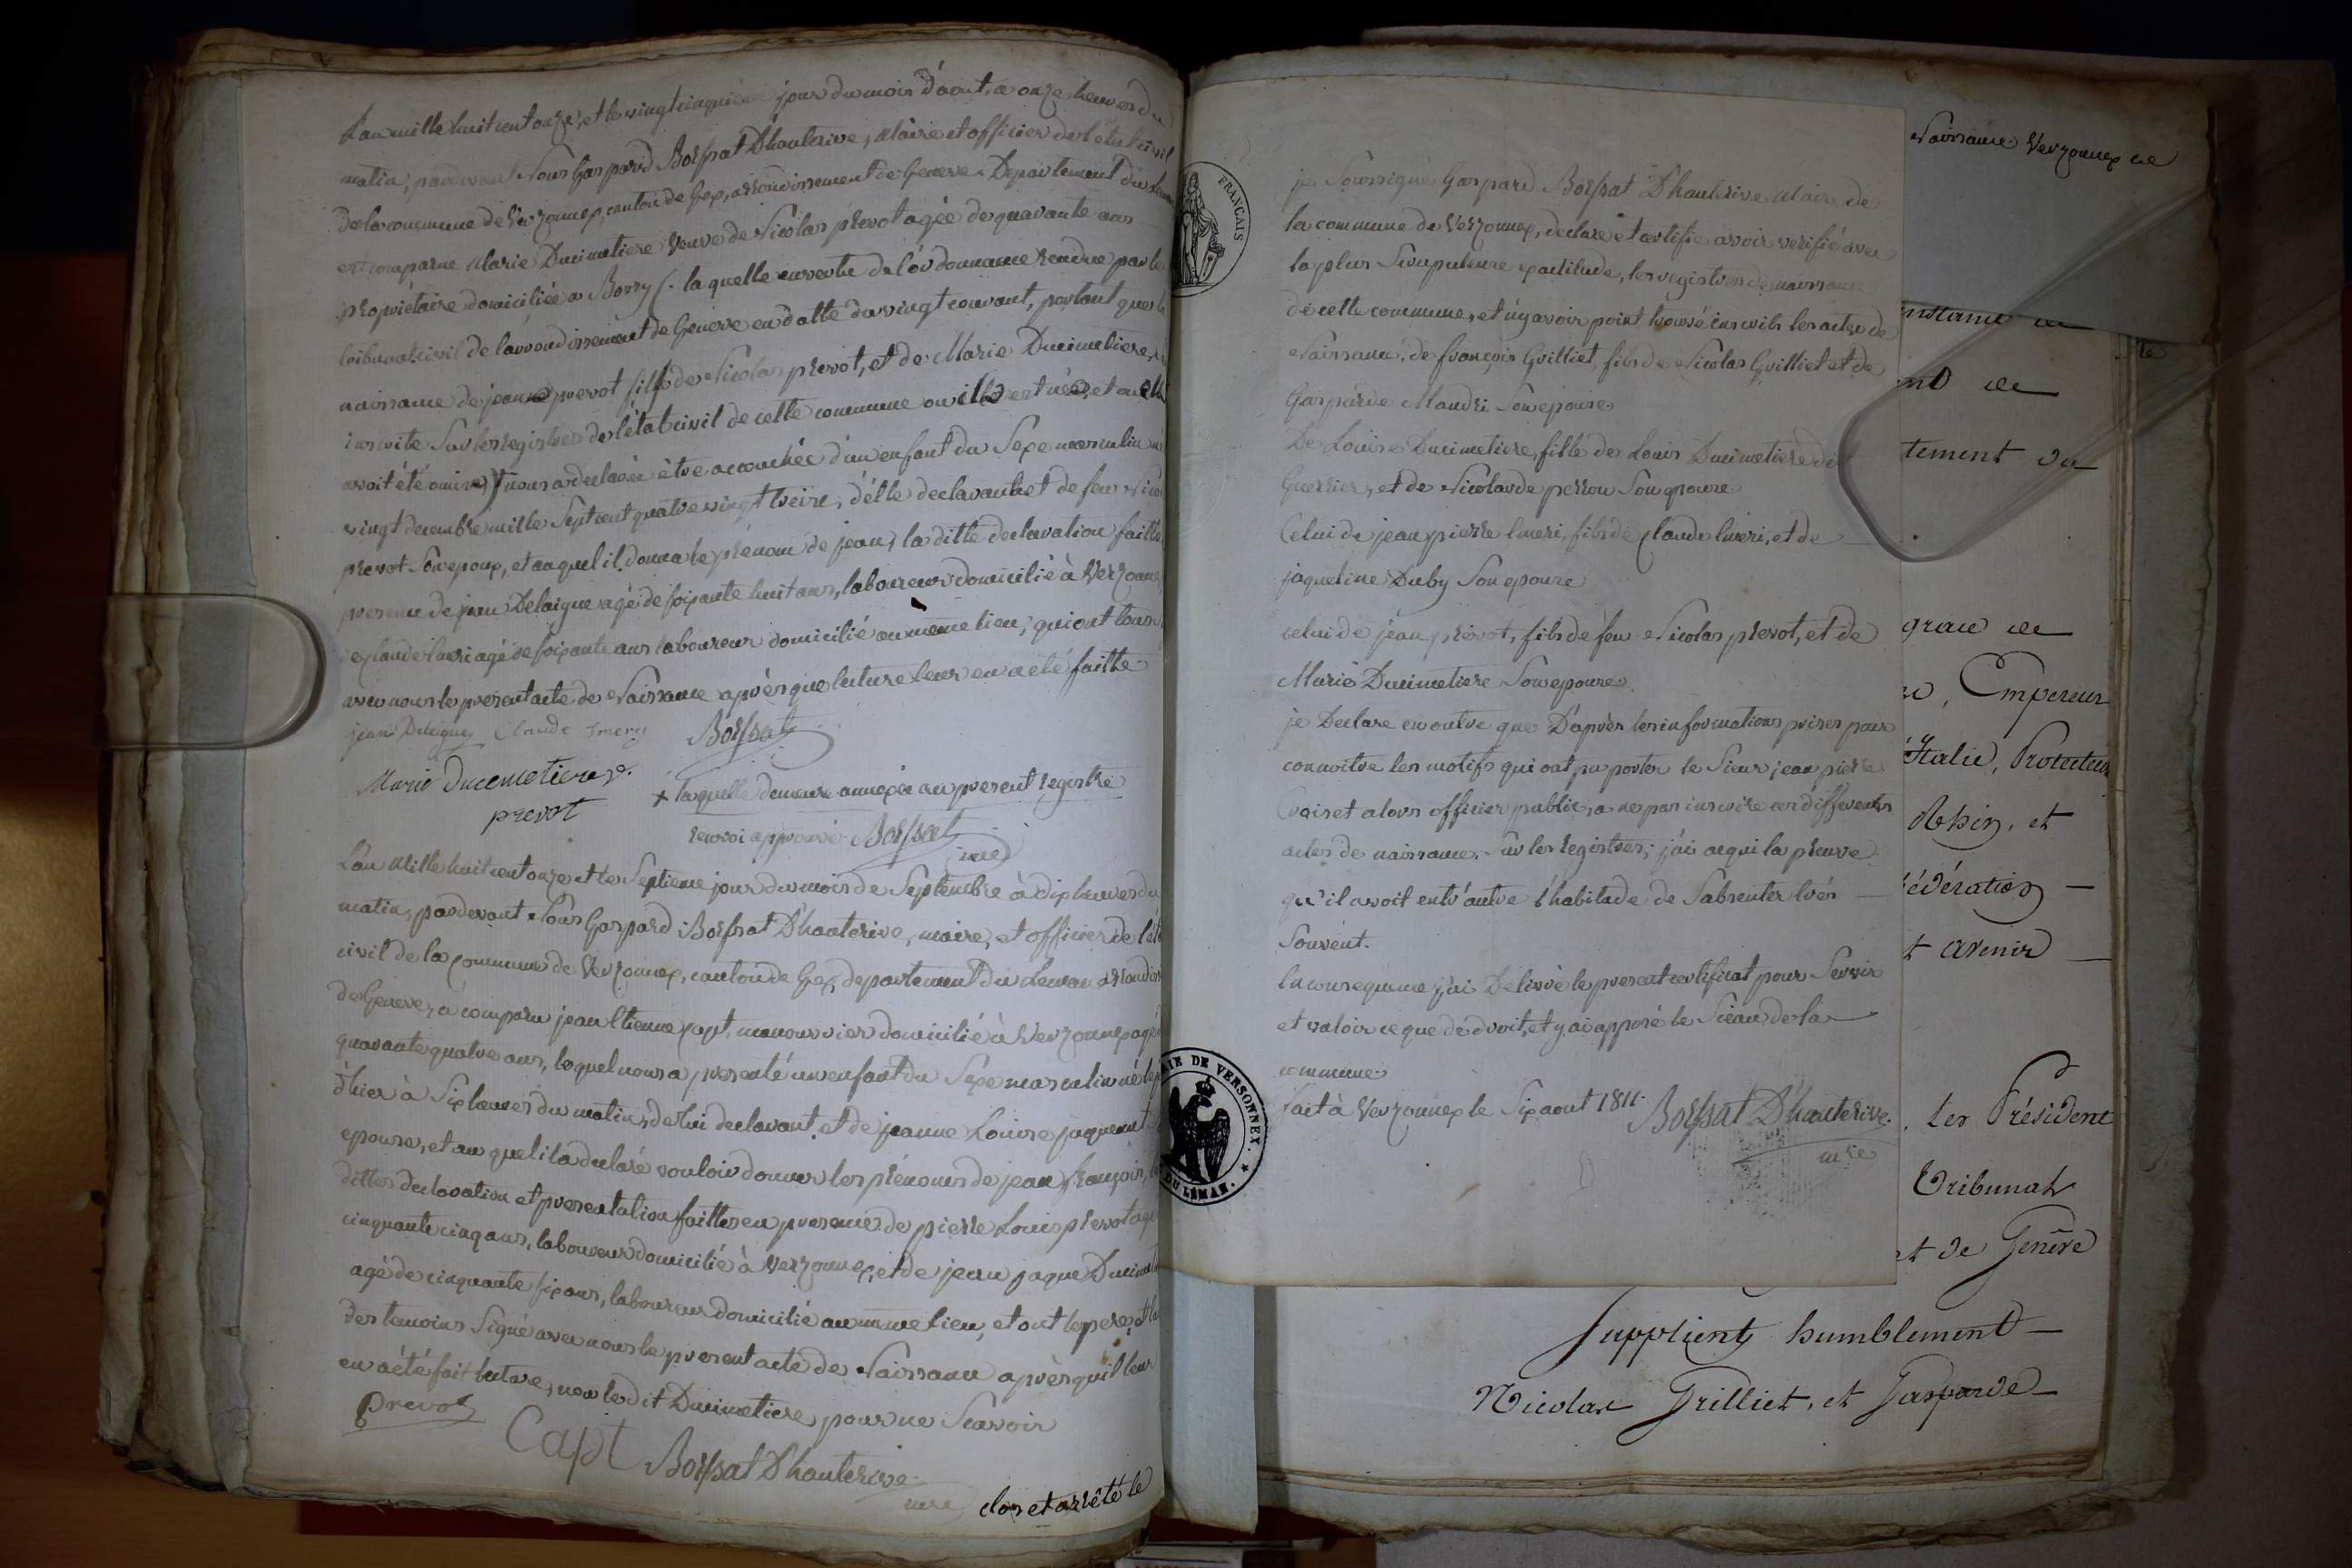 L'an mille huit cent onze, et le vingt cinquieme jour du mois d'aout, a onze heures du
matin, pardevant Nous Gaspard Boissat D'hauterive, Maire et officier de l'état civil
de la commune de Verzonnex, canton de Gex, arrondissement de Geneve Departement du Leman
est comparue Marie Ducimetiere Veuve de Nicolas prevot agée de quarante ans
propriétaire domiciliée a Bossy (. la quelle en vertu de l'ordonnance rendue par le
tribunal civil de l'arrondissement de Genève en datte du vingt courant, portant que la
naissance de jean prevot fils de Nicolas prevot, et de Marie Ducimetiere,
inscrite Sur les registres de l'état civil de cette commune ou elle est née, et ou elle
avoit été omise) † nous a declarée être accouchée d'un enfant du Sexe masculin
vingt decembre mille Sept cent quatre vingt treize, d'elle declarante et de feu Nicolas
prevot Son epoux, et auquel il donna le prénom de jean, la ditte declaration faitte
presence de jean Delaigue agé de soixante huit ans, laboureur domicilié à Verzonnex
claude Emeri agé de soixante ans laboureur domicilié au même lieu, qui ont tous
avec nous le present acte de Naissance après que lecture leur en a été faitte.
jean Delaigue Claude Emery Boissat
Marie Ducemetiere v.
prevot
† laquelle demeure annexée au present registre
renvoi approuvé Boissat
mre
L'an Mille huit cent onze et le Septieme jour du mois de Septembre à dix heures du
matin, pardevant Nous Gaspard Boissat D'hauterive, maire, et officier de l'état
civil de la commune de Verzonnex, canton de Gex, departement du Leman arrondis
de Geneve, a comparu jean Etienne Capt, manouvrier domicilié à Verzonnex agé
quarante quatre ans, lequel nous a presenté un enfant du Sexe masculin né le
d'hier à Six heures du matin, de lui declarant, et de jeanne Louise jaquemet
epouse, et au quel il a declaré vouloir donner les prénoms de jean françois,
dittes declaration et presentation faittes en presence de pierre Louis prevot agé
cinquante cinq ans, laboureur domicilié à Verzonnex, et de jean jaque Ducimet
agé de cinquante six ans, laboureur domicilié au même lieu, et ont le pere, et la
des temoins Signé avec nous le present acte de Naissance après qu'il leur
en a été fait lecture, non le dit Ducimetiere pour ne Scavoir
Prevot
Capt Boissat D'hauterive
mre
clos et arrêté le
FRANCAIS
je Soussigné Gaspard Boissat D'hauterive Maire de
la commune de Verzonnex, declare et certifie avoir verifié avec
la plus Scrupuleuse exactitude, les registres de naissance
de cette commune, et n'y avoir point trouvé inscrits les actes de
Naissance, de françois Grilliet, fils de Nicolas Grilliet et de
Gasparde Maudri Son epouse.
De Louise Ducimetiere, fille de Louis Ducimetiere dit
Guerrier, et de Nicolarde perrou Son epouse
Celui de jean pierre Emeri, fils de Claude Emeri, et de
jaqueline Duby Son epouse
celui de jean prévot, fils de feu Nicolas prevot, et de
Marie Ducimetiere Son epouse.
je Declare en outre que D'après les informations prises pour
connoitre les motifs qui ont pu porter le Sieur jean pierre
Croiset alors officier public, a ne pas inscrire ces differents
actes de naissance, sur les registres; j'ai acquis la preuve
qu'il avoit entr'autre l'habitude de S'absenter très
Souvent.
En consequence j'ai Delivré le present certificat pour Servir
et valoir ce que de droit, et y ai apposé le Sceau de la
commune.
fait à Verzonnex le Six aout 1811. Boissat D'hauterive.
mre
MAIRIE DE VERSONNEX. DU LÉMAN.
Naissance Verzonnex
instance
tement du
grace
Empereur
d'Italie, Protecteur
Rhin, et
fédération
et avenir
les Président
Tribunal
et de Genève
Supplient humblement
Nicolas Grilliet, et Gasparde